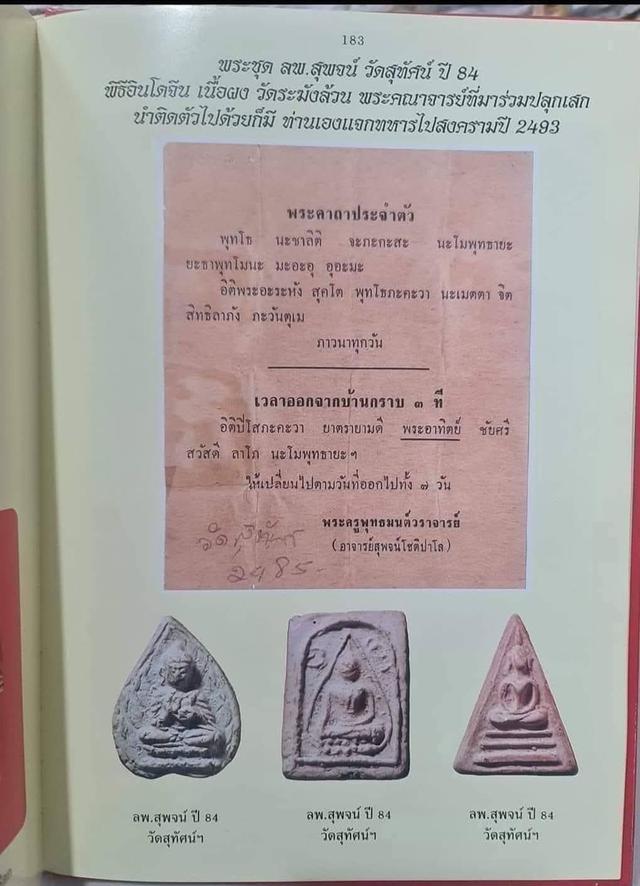 183
พระชุด ลพ.สุพจน์ วัดสุทัศน์ ปี 84
พิธีอินโดจีน เนื้อผง วัดระมังล้วน พระคณาจารย์ที่มาร่วมปลุกเสก
นำติดตัวไปด้วยก็มี ท่านเองแจกทหารไปสงครามปี 2493
พระคาถาประจำตัว
พุทโธ นะชาลิติ จะภะกะสะ นะโมพุทธายะ
ยะธาพุทโมนะ มะอะอุ อุอะมะ
อิติพระอะระหัง สุคโต พุทโธภะคะวา นะเมตตา จิต
สิทธิลาภัง ภะวันตุเม
ภาวนาทุกวัน
เวลาออกจากบ้านกราบ ๓ ที
อิติปิโสภะคะวา ยาตรายามดี พระอาทิตย์ ชัยศรี
สวัสดี ลาโภ นะโมพุทธายะฯ
ให้เปลี่ยนไปตามวันที่ออกไปทั้ง ๗ วัน
พระครูพุทธมนต์วราจารย์
(อาจารย์สุพจน์โชติปาโล)
วัดสุทัศน์
2485-
ลพ.สุพจน์ ปี 84
วัดสุทัศน์ฯ
ลพ.สุพจน์ ปี 84
วัดสุทัศน์ฯ
ลพ.สุพจน์ ปี 84
วัดสุทัศน์ฯ